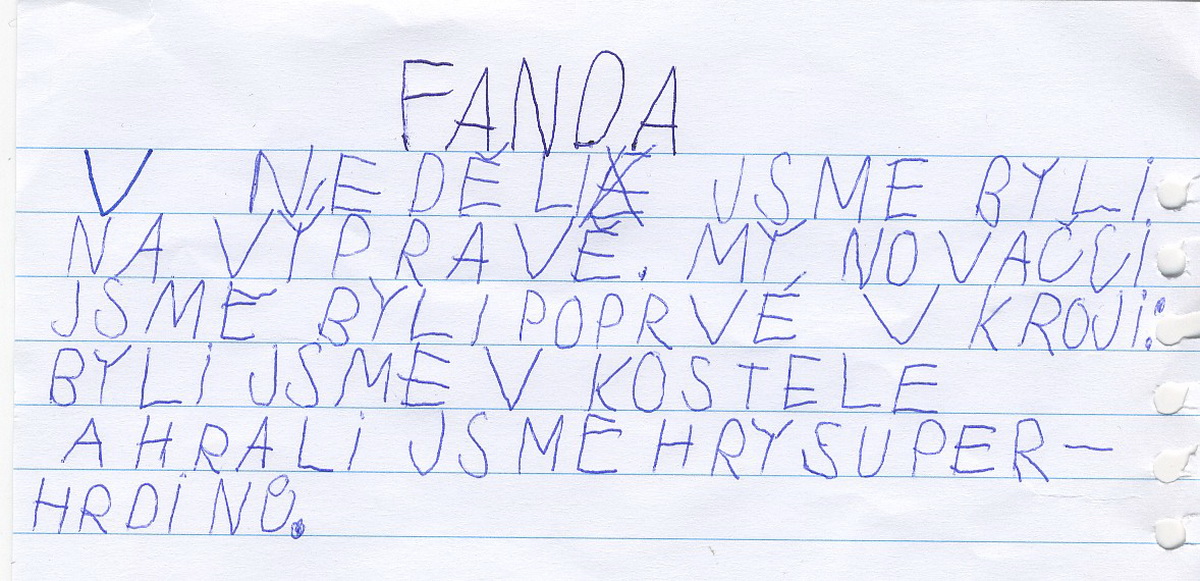 FANDA
V NEDĚLI JSME BYLI
NA VÝPRAVĚ. MY, NOVÁČCI
JSME BYLI POPRVÉ V KROJI.
BYLI JSME V KOSTELE
A HRALI JSME HRY SUPER-
HRDINO.